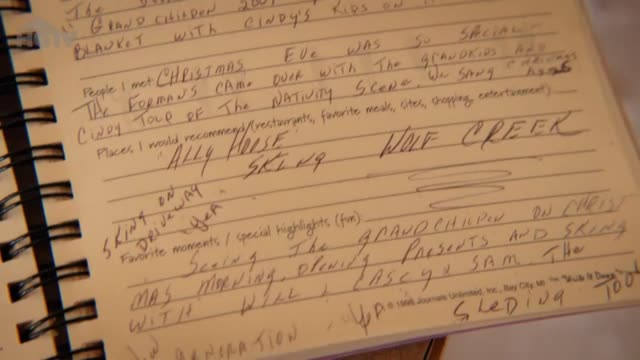 THE
GRANDCHILDEN 200
BLANKET WITH CINDY'S KIDS ON
People I met CHRISTMAS EVE WAS SO SPECIAL
THE FORMANS CAME OVER WITH THE GRANDKIDS AND
CINDY TOLD OF THE NATIVITY SCENE, WE SANG
Places I would recommend (restaurants, favorite meals, sites, shopping, entertainment)
ALLY HORSE
SKING WOLF CREEK
SKING ON
DRIVEWAY
Favorite moments / special highlights (fun)
SEEING THE GRANDCHILDEN ON CHRIST
MAS MORNING, OPENING PRESENTS AND SKING
WITH WILL, CASEY & SAM. THE
© 1998 Journals Unlimited, Inc., Bay City, MI "Write it Down"
SLEDING TOO!